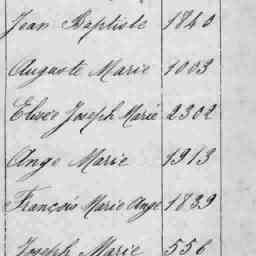 Jean Baptiste 1840
Auguste Marie 1003
Elisée Joseph Marie 2302
Ange Marie 1913
François Marie Ange 1839
Joseph Marie 556